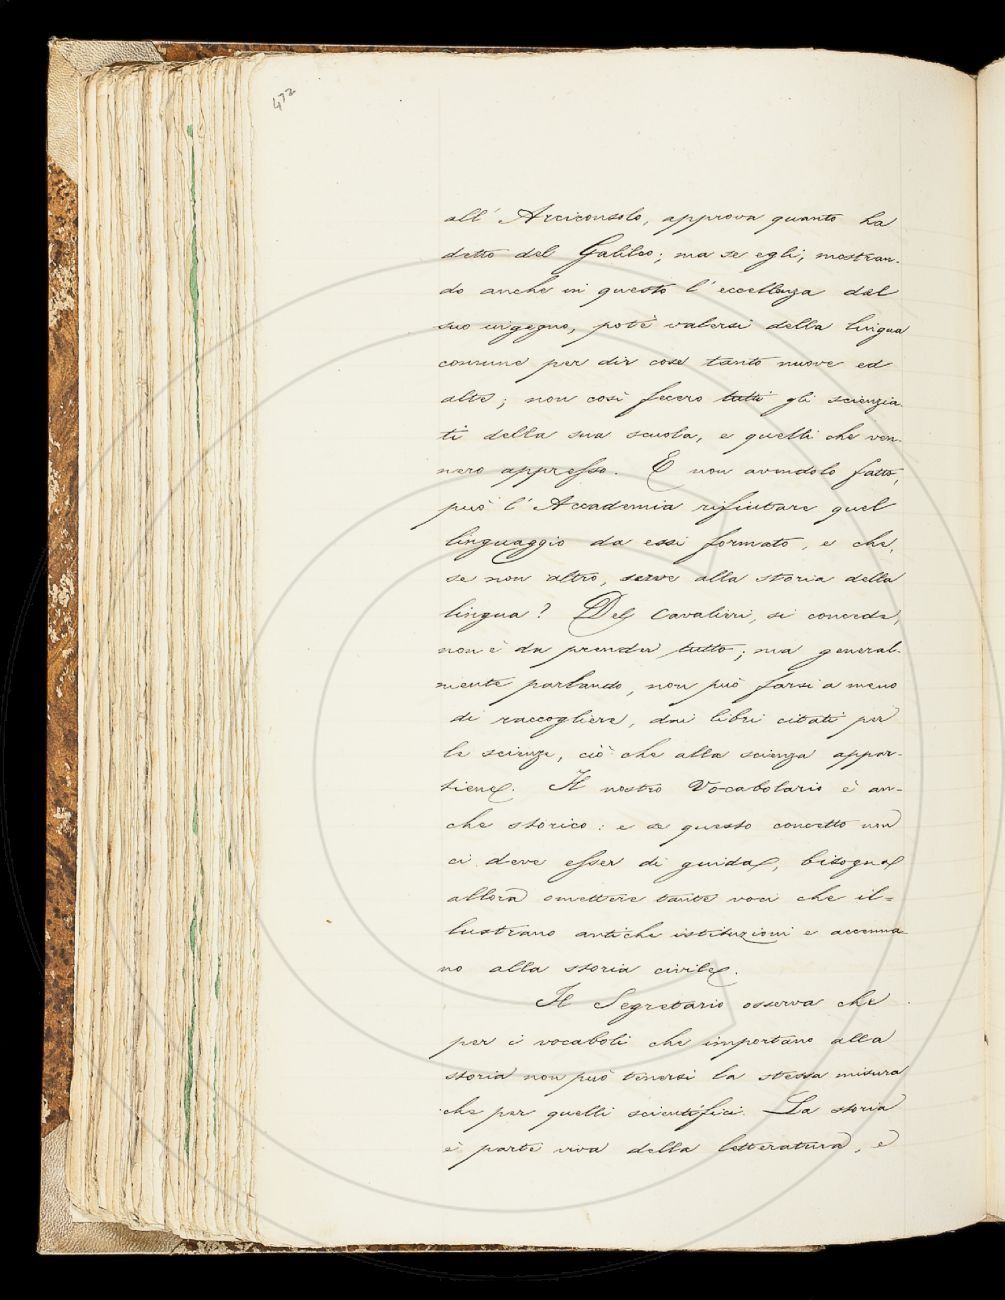 472
all' Arciconsolo, approva quanto ha
detto del Galileo; ma se egli, mostran-
do anche in questo l'eccellenza del
suo ingegno, potè valersi della lingua
comune per dir cose tanto nuove ed
alte; non così fecero tutti gli scienzia-
ti della sua scuola, e quelli che ven-
nero appresso. E non avendolo fatto,
può l'Accademia rifiutare quel
linguaggio da essi formato, e che,
se non altro, serve alla storia della
lingua? Del Cavalieri, si conceda,
non è da prender tutto; ma general-
mente parlando, non può farsi a meno
di raccogliere, dai libri citati per
le scienze, ciò che alla scienza appar-
tiene. Il nostro Vocabolario è an-
che storico: e se questo concetto non
ci deve esser di guida, bisogna
allora omettere tante voci che il-
lustrano antiche istituzioni e accenna-
no alla storia civile.
Il Segretario osserva che
per i vocaboli che importano alla
storia non può tenersi la stessa misura
che per quelli scientifici. La storia
è parte viva della letteratura, e